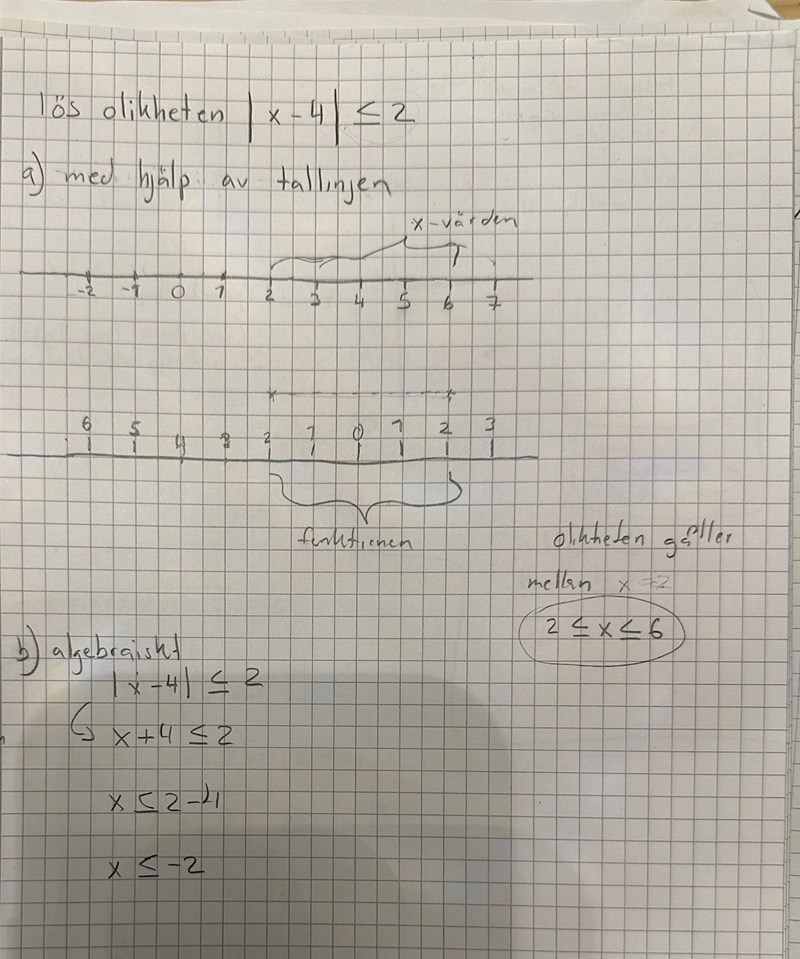 lös olikheten |x-4| ≤ 2
a) med hjälp av tallinjen
x-värden
-2 -1 0 1 2 3 4 5 6 7
6 5 4 3 2 1 0 1 2 3
funktionen
olikheten gäller
mellan x =2
2 ≤ x ≤ 6
b) algebraiskt
|x-4| ≤ 2
x+4 ≤ 2
x ≤ 2-4
x ≤ -2